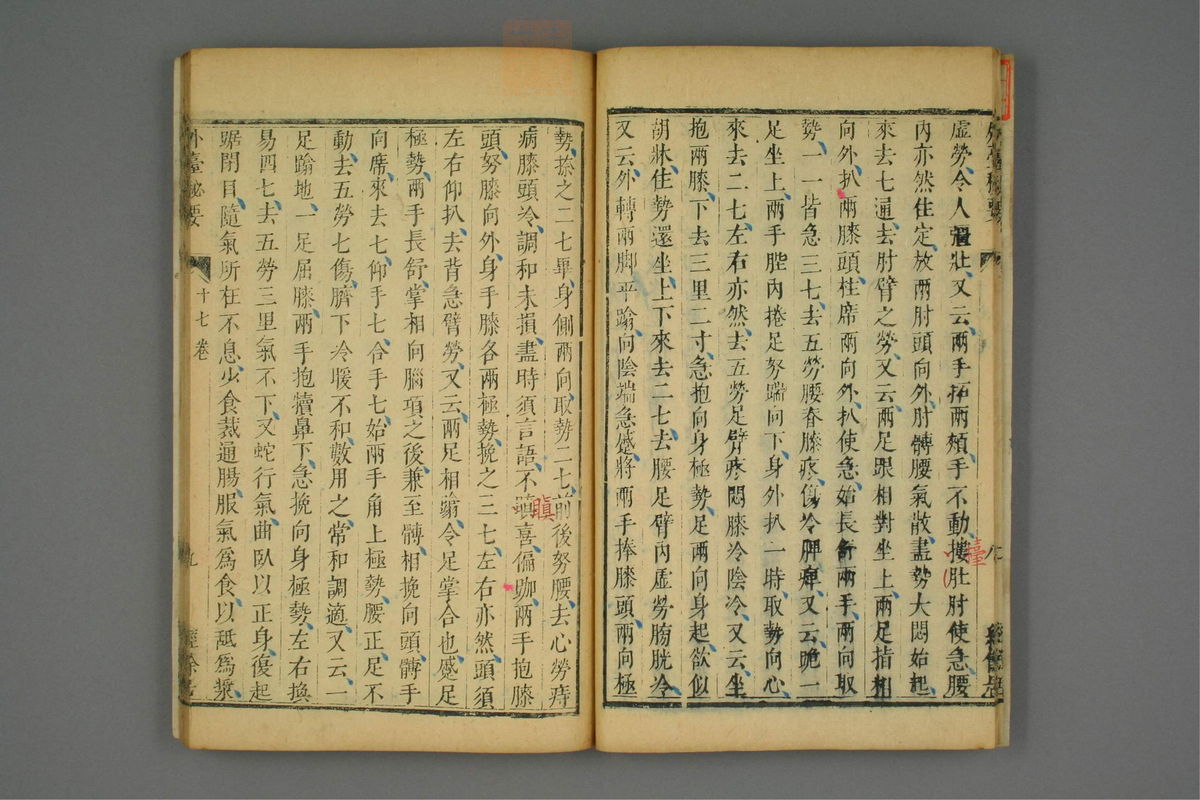 虛勞令人彊壯又云兩手拓兩頰手不動摟肚肘使急腰
內亦然住定放兩肘頭向外肘髆腰氣散盡勢大悶始起
來去七通去肘臂之勞又云兩足跟相對坐上兩足指相
向外扒兩膝頭柱席兩向外扒使急始長舒兩手兩向取
勢一一皆急三七去五勞腰脊膝疼傷冷脾痺又云跪一
足坐上兩手䏶內捲足努踹向下身外扒一時取勢向心
來去二七左右亦然去五勞足臂疼悶膝冷陰冷又云坐
抱兩膝下去三里二寸急抱向身極勢足兩向身起欲似
胡牀住勢還坐上下來去二七去腰足臂內虛勞膀胱冷
又云外轉兩脚平踰向陰端急蹙將兩手捧膝頭兩向極
勢捺之二七畢身側兩向取勢二七前後努腰去心勞痔
病膝頭冷調和未損盡時須言語不嗔喜偏跏兩手抱膝
頭努膝向外身手膝各兩極勢挽之三七左右亦然頭須
左右仰扒去背急臂勞又云兩足相踰令足掌合也蹙足
極勢兩手長舒掌相向腦項之後兼至髆相挽向頭髆手
向席來去七仰手七合手七始兩手角上極勢腰正足不
動去五勞七傷臍下冷暖不和數用之常和調適又云一
足踰地一足屈膝兩手抱犢鼻下急挽向身極勢左右換
易四七去五勞三里氣不下又蛇行氣曲臥以正身復起
踞閉目隨氣所在不息少食裁通腸服氣爲食以舐爲漿
外臺祕要
十七卷
九
經餘居
瞋
臺